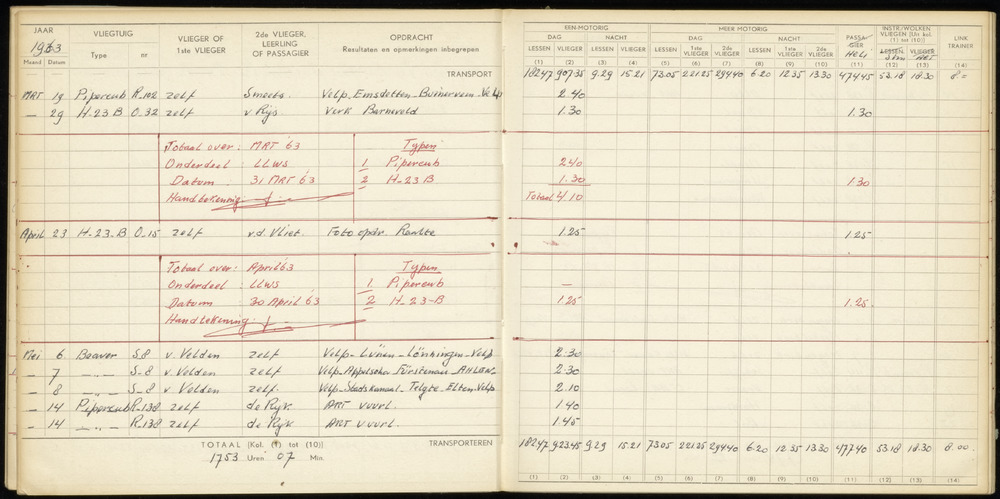 JAAR 1963 Maand Datum
VLIEGTUIG Type nr
VLIEGER OF 1ste VLIEGER
2de VLIEGER, LEERLING OF PASSAGIER
OPDRACHT Resultaten en opmerkingen inbegrepen
TRANSPORT
MRT 19 Pipercub R.102 zelf Smeets. Velp-Emsdetten-
— 29 H-23 B O.32 zelf v Rijs. Verk Barneveld
Totaal over: MRT '63 Typen
Onderdeel: LLWS 1 Pipercub
Datum 31 MRT '63 2 H-23 B
Handtekening
April 23 H-23-B O-15 zelf v.d. Vliet. Foto opdr.
Totaal over: April '63 Typen
Onderdeel: LLWS 1. Pipercub
Datum 30 April '63 2 H-23-B
Handtekening
Mei 6 Beaver S-8 v. Velden zelf Velp-Lünen-Löningen-Velp
— 7 —„— S-8 v. Velden zelf Velp-Appelscha-Fürstenau-AHLEN-
— 8 —„— S-8 v Velden zelf. Velp-Stadskanaal-Telgte-Elten-Velp
— 14 Pipercub R-138 zelf de Ryk. ART vuurl.
— 14 —„— R.138 zelf de Ryk ART vuurl.
TOTAAL (Kol. (1) tot (10))
1753 Uren 07 Min.
TRANSPORTEREN
EEN-MOTORIG
DAG NACHT
LESSEN VLIEGER LESSEN VLIEGER
(1) (2) (3) (4)
MEER MOTORIG
DAG NACHT
LESSEN 1ste VLIEGER 2de VLIEGER LESSEN 1ste VLIEGER 2de VLIEGER
(5) (6) (7) (8) (9) (10)
PASSAGIER Heli (11)
INSTR/WOLKEN VLIEGEN (Uit kol. (1) tot (10))
LESSEN Sim VLIEGER ART
(12) (13)
LINK TRAINER
(14)
182.47 907.35 9.29 15.21 73.05 221.25 294.40 6.20 12.35 13.30 474.45 53.18 18.30 8=
2.40
1.30 1.30
2.40
1.30 1.30
Totaal 4.10
1.25 1.25
—
1.25 1.25.
2.30
2.30
2.10
1.40
1.45
182.47 923.45 9.29 15.21 73.05 221.25 294.40 6.20 12.35 13.30 477.40 53.18 18.30 8.00
(1) (2) (3) (4) (5) (6) (7) (8) (9) (10) (11) (12) (13) (14)